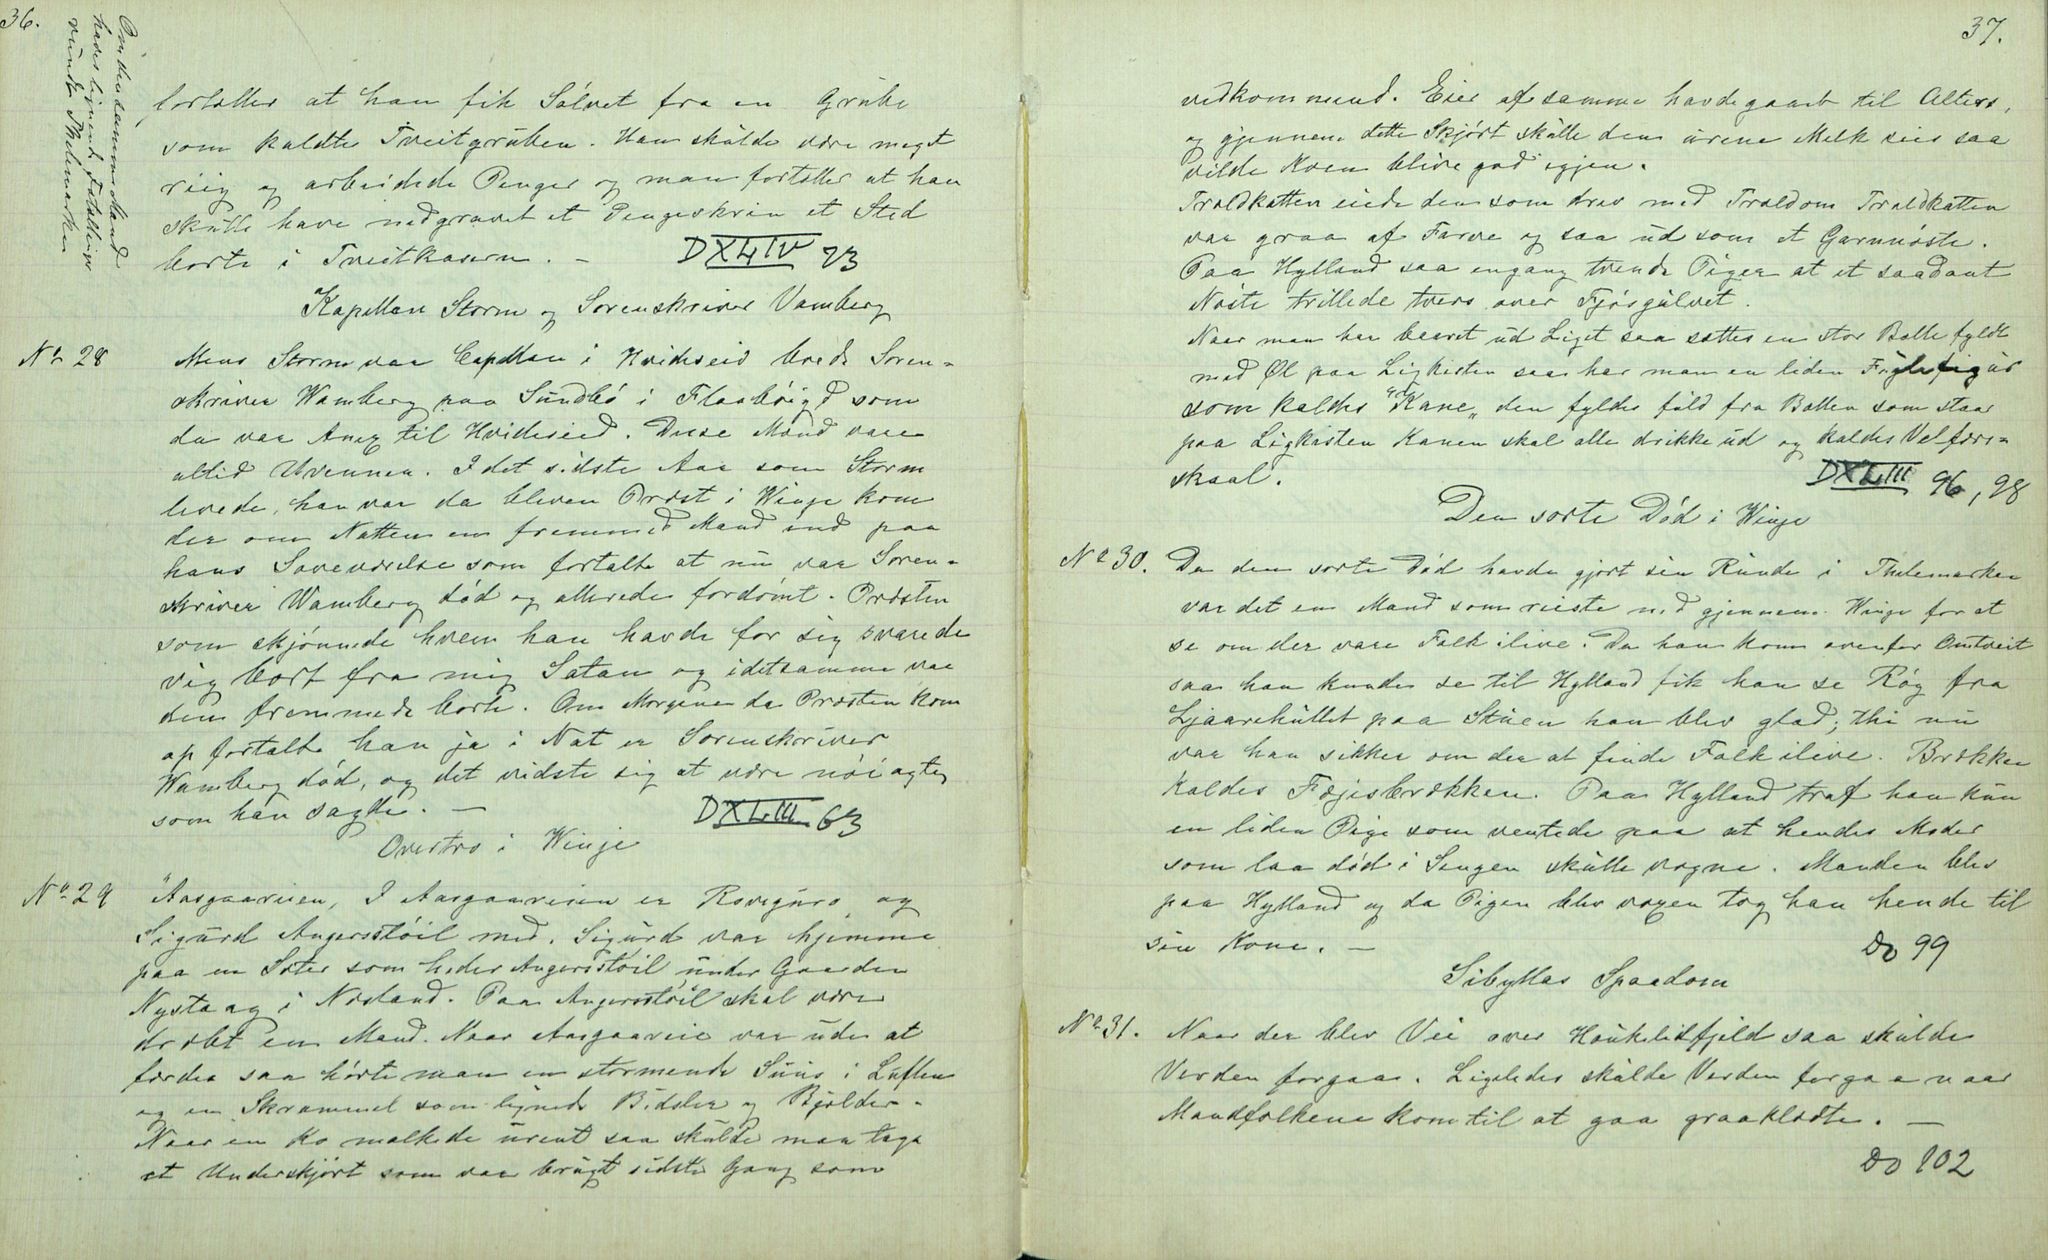 36.
Om denne samme Mand
haves lignende Fortællinger
rundt Thelemarken
fortælles at han fik Sölvet fra en Grube
som kaldtes Tveitgruben. Han skulde være meget
riig og arbeidede Penger og man fortæller at han
skulle have nedgravet et Pengeskrin et Sted
borte i Tveitkasen. –
DXLIV 73
Kapellan Storm og Sorenskriver Vamberg
No 28 Mens Storm var Capellan i Hvideseid boede Soren-
skriver Wamberg paa Sundbö i Flaaböigd som
da var Anex til Hvideseid. Disse Mænd vare
altid Uvenner. I det sidste Aar som Storm
levede, han var da bleven Præst i Winje kom
der om Natten en fremmed Mand ind paa
hans Soveværelse som fortalte at nu var Soren-
skriver Wamberg död og allerede fordömt. Præsten
som skjönnede hvem han havde for sig svarede
vig bort fra mig Satan og idetsamme var
den fremmede borte. Om Morgenen da Præsten kom
op fortalte han ja i Nat er Sorenskriver
Wamberg död, og det vidste sig at være nöiagtig
som han sagde. –
DXLIII 63
Overtro i Winje
No 29 "Aasgaareien, I Aasgaareien er Rovegúro og
Sigurd Angersstöil med. Sigurd var hjemme
paa en Sæter som heder Angersstöil under Gaarden
Nystaag i Næsland. Paa Angersstöil skal være
dræbt en Mand. Naar Aasgaareie var ude at
færdes saa hörte man en stormende Suus i Luften
og en Skrammel som lignede Bidsler og Bjelder.
Naar en Ko malkede urent saa skulde man tage
et Underskjört som var brugt sidste Gang som
37.
vedkommend. Eier af samme havde gaaet til Alters,
og gjennem dette Skjört skulle den urene Melk sies saa
vilde Koen blive god igjen.
Troldkatten eiede den som drev med Troldom Troldkatten
var graa af Farve og saa ud som et Garnnöste.
Paa Hylland saa engang tvende Piger at et saadant
Nöste trillede tvers over Fjösgulvet.
Naar man har baaret ud Liget saa sættes en stor Bolle fyldt
med Øl paa Ligkisten saa har man en liden Fuglefigur
som kaldes "Kane" den fyldes fuld fra Bollen som staar
paa Ligkisten Kanen skal alle drikke ud og kaldes Velfærs-
skaal.
DXLIII 96, 98
Den sorte Död i Winje
No 30. Da den sorte Död havde gjort sin Runde i Thelemarken
var det en Mand som reiste ned gjennem Winje for at
se om der vare Folk ilive. Da han kom ovenfor Omtveit
saa han kunde se til Hylland fik han se Røg fra
Ljaarehullet paa Stuen han blev glad; thi nu
var han sikker om der at finde Folk ilive. Brækken
kaldes Fægisbrækken. Paa Hylland traf han kun
en liden Pige som ventede paa at hendes Moder
som laa död i Sengen skulle vogne. Manden blev
paa Hylland og da Pigen blev voxen tog han hende til
sin Kone. –
Do 99
Sibyllas Spaadom
No 31. Naar der blev Vei over Haukelidfjeld saa skulde
Verden forgaa. Ligeledes skulde Verden forgaa naar
Mandfolkene kom til at gaa graaklædte. –
Do 102